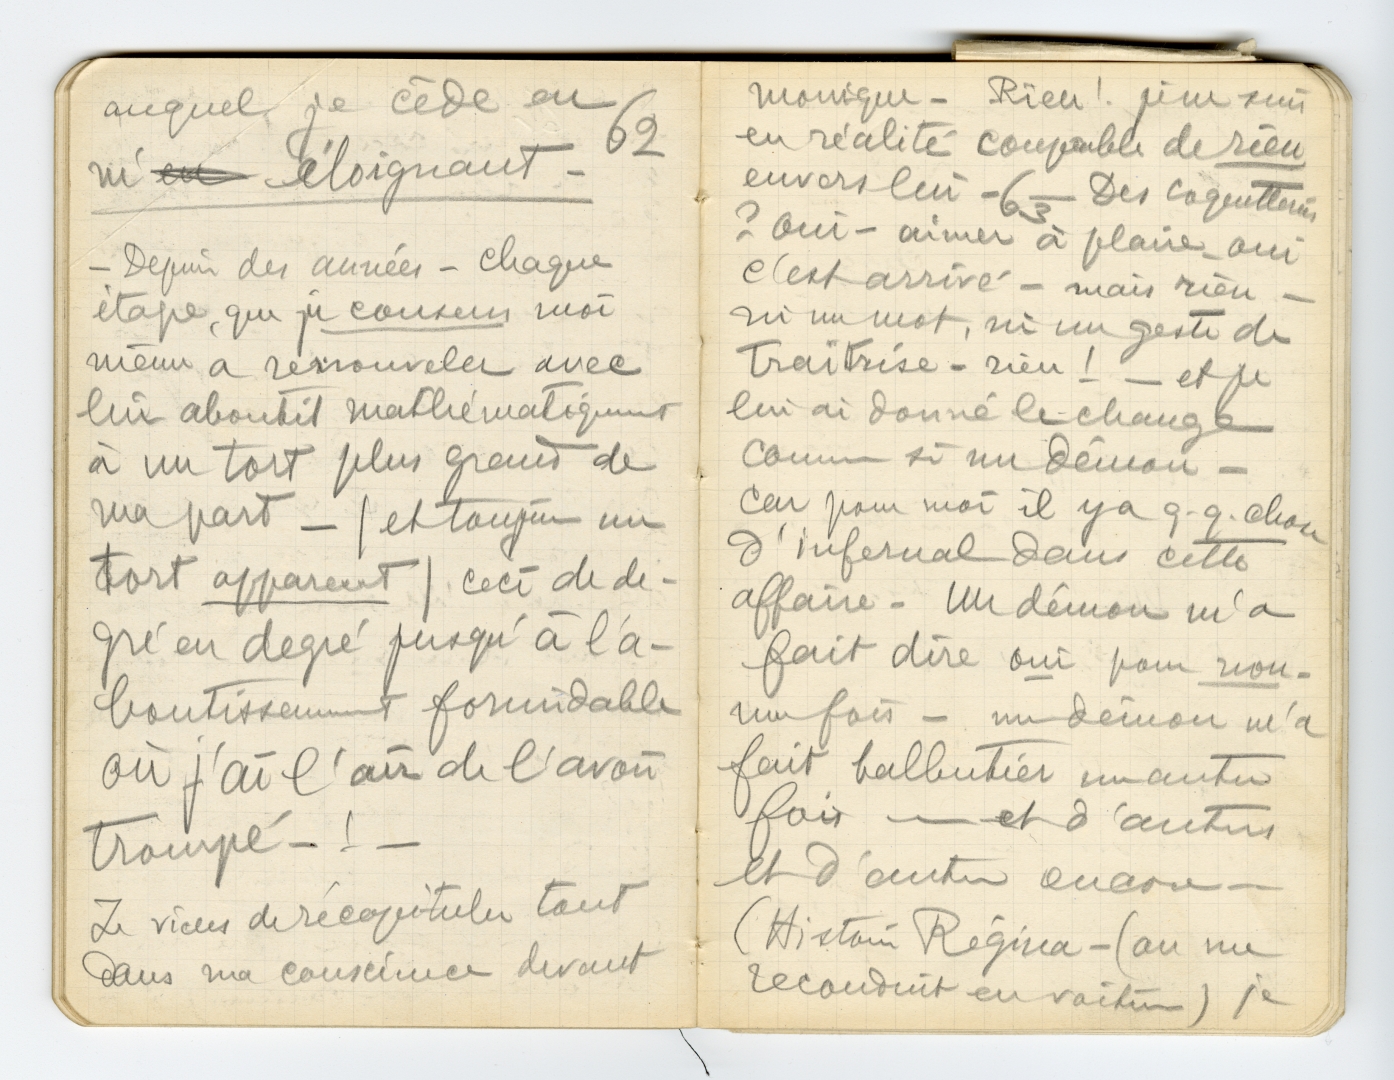 auquel je cède en 62
m'en éloignant -
- Depuis des années - chaque
étape, que je consens moi
même a renouveler avec
lui aboutit mathématiquement
à un tort plus grand de
ma part - (et toujours un
tort apparent) ceci de de-
gré en degré jusqu'à l'a-
boutissement formidable
où j'ai l'air de l'avoir
trompé - ! -
Je viens de récapituler tout
dans ma conscience devant
Monique - Rien! je ne suis
en réalité coupable de rien
envers lui - 63 Des coquetteries
? Oui - aimer à plaire, oui
c'est arrivé - mais rien -
ni un mot, ni un geste de
traîtrise - rien! - et je
lui ai donné le change
comme si un démon -
car pour moi il y a q.q. chose
d'infernal dans cette
affaire - Un démon m'a
fait dire oui pour non -
une fois - un démon m'a
fait balbutier une autre
fois - et d'autres
et d'autres encore -
(Histoire Régina - (on me
reconduit en voiture) je